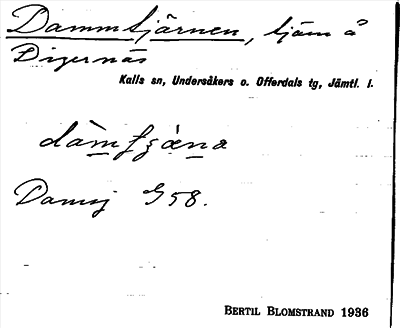 Dammtjärnen, tjärn å
Digernäs
Kalls sn, Undersåkers o. Offerdals tg, Jämtl. l.
Damsj G 58.
BERTIL BLOMSTRAND 1936